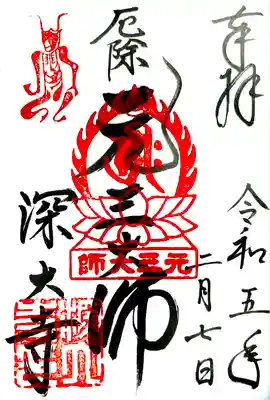 奉拝
令和五年
二月七日
厄除
元三大師
師大三元
深大寺